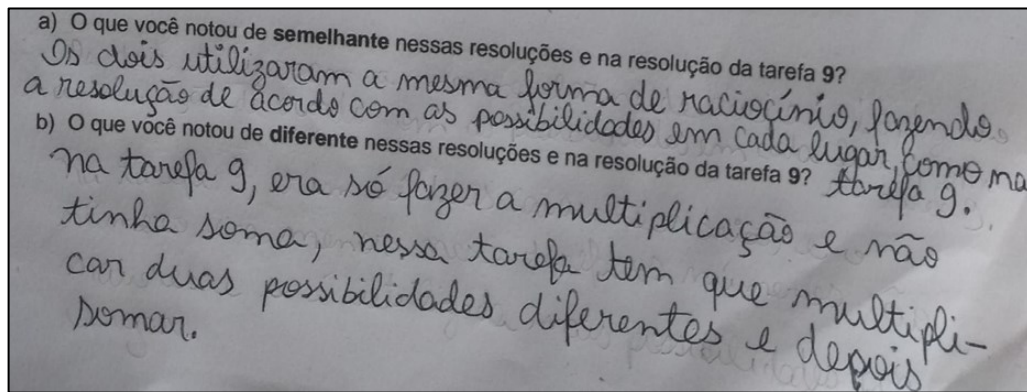 a) O que você notou de semelhante nessas resoluções e na resolução da tarefa 9?
Os dois utilizaram a mesma forma de raciocínio, fazendo
a resolução de acordo com as possibilidades em cada lugar, como na
tarefa 9.
b) O que você notou de diferente nessas resoluções e na resolução da tarefa 9?
na tarefa 9, era só fazer a multiplicação e não
tinha soma, nessa tarefa tem que multipli-
car duas possibilidades diferentes e depois
somar.